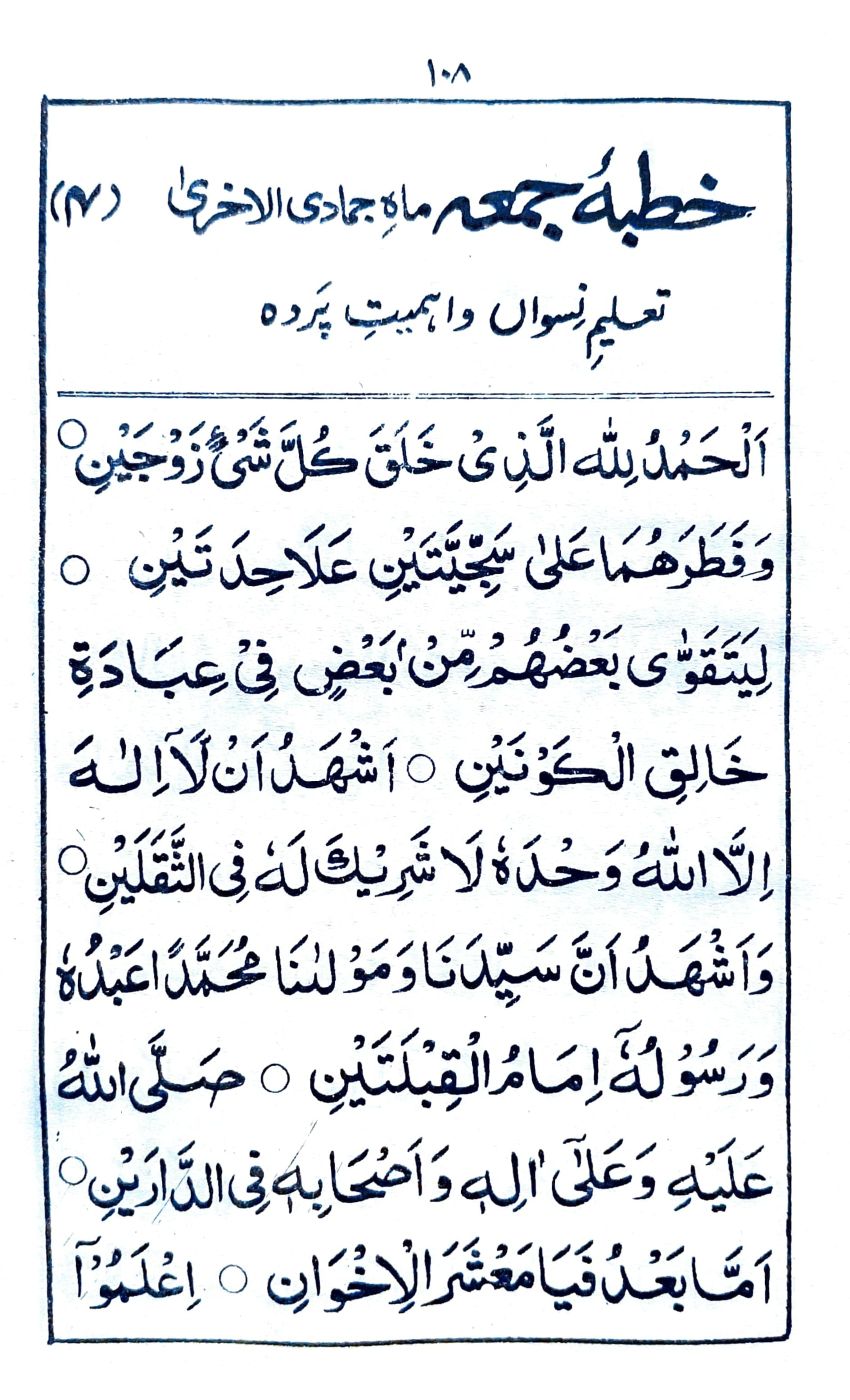 ۱۰۸
خطبۂ جمعہ ماہِ جمادی الاخریٰ (۴)
تعلیمِ نِسواں واہمیتِ پَردہ
اَلْحَمْدُ لِلّٰہِ الَّذِیْ خَلَقَ کُلَّ شَیْئٍ زَوْجَیْنِ ○
وَفَطَرَھُمَا عَلٰی سَجِیَّتَیْنِ عَلَاحِدَتَیْنِ ○
لِیَتَقَوّٰی بَعْضُھُمْ مِّنْۢ بَعْضٍ فِیْ عِبَادَۃِ
خَالِقِ الْکَوْنَیْنِ ○ اَشْھَدُ اَنْ لَّآ اِلٰـہَ
اِلَّا اللّٰہُ وَحْدَہٗ لَا شَرِیْکَ لَہٗ فِی الثَّقَلَیْنِ ○
وَاَشْھَدُ اَنَّ سَیِّدَنَا وَمَوْلٰنَا مُحَمَّدًا عَبْدُہٗ
وَرَسُوْلُہٗٓ اِمَامُ الْقِبْلَتَیْنِ ○ صَلَّی اللّٰہُ
عَلَیْہِ وَعَلٰٓی اٰلِہٖ وَاَصْحَابِہٖ فِی الدَّارَیْنِ ○
اَمَّا بَعْدُ فَیَا مَعْشَرَ الْاِخْوَانِ ○ اِعْلَمُوْٓا